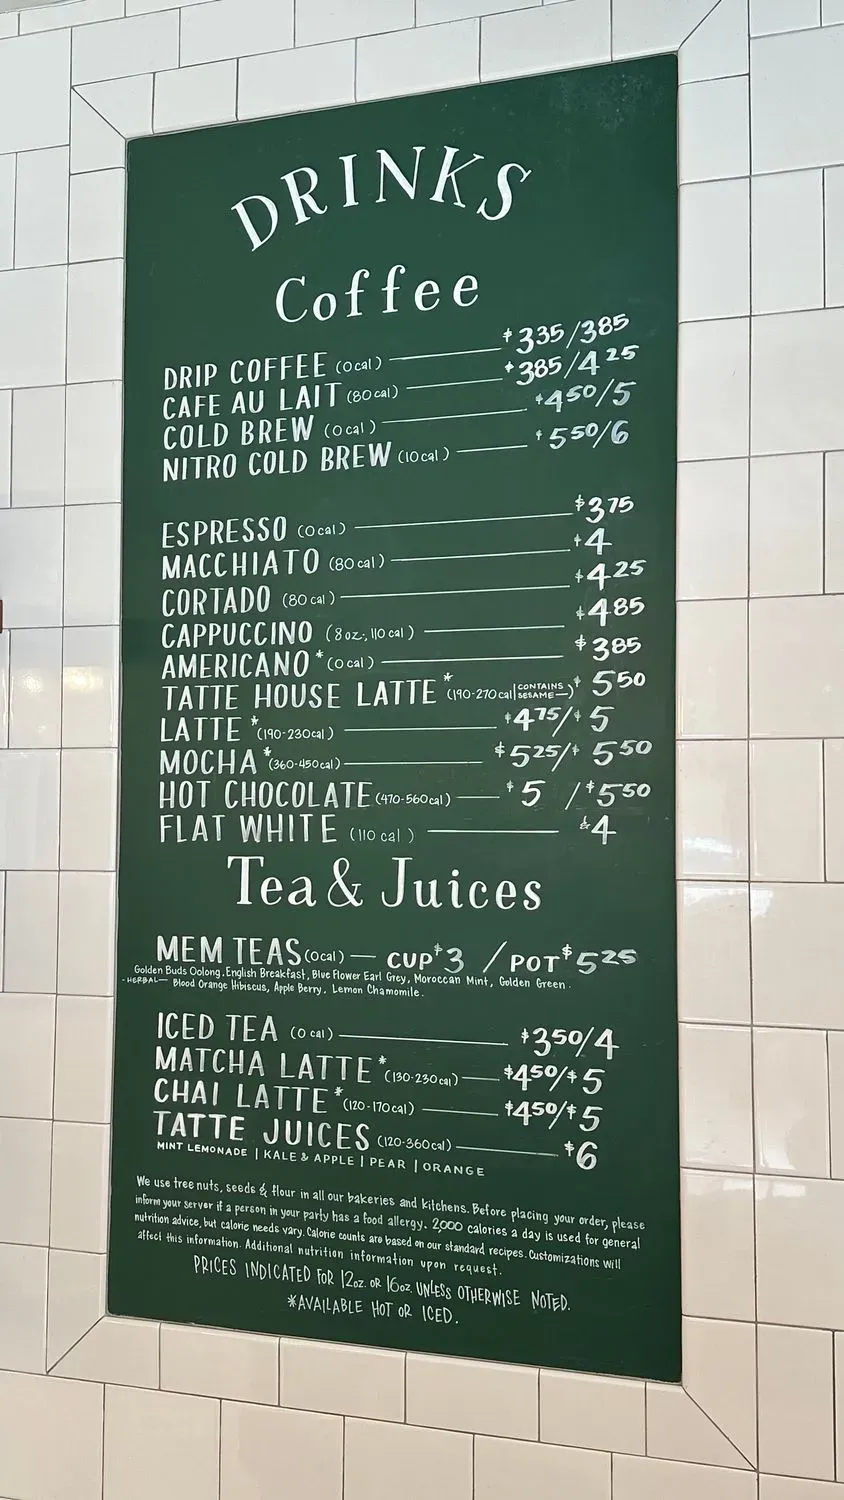 DRINKS
Coffee
DRIP COFFEE (0cal) $335/385
CAFE AU LAIT (80cal) $385/425
COLD BREW (0cal) $450/5
NITRO COLD BREW (10cal) $550/6
ESPRESSO (0cal) $375
MACCHIATO (80cal) $4
CORTADO (80cal) $425
CAPPUCCINO (8oz., 110cal) $485
AMERICANO* (0cal) $385
TATTE HOUSE LATTE* (190-270cal|CONTAINS SESAME) $550
LATTE* (190-230cal) $475/$5
MOCHA* (360-450cal) $525/$550
HOT CHOCOLATE (470-560cal) $5 /$550
FLAT WHITE (110 cal) $4
Tea & Juices
MEM TEAS (0cal) — CUP $3 / POT $525
Golden Buds Oolong, English Breakfast, Blue Flower Earl Grey, Moroccan Mint, Golden Green.
-HERBAL— Blood Orange Hibiscus, Apple Berry, Lemon Chamomile.
ICED TEA (0 cal) $350/4
MATCHA LATTE* (130-230cal) $450/$5
CHAI LATTE* (120-170cal) $450/$5
TATTE JUICES (120-360cal) $6
MINT LEMONADE | KALE & APPLE | PEAR | ORANGE
We use tree nuts, seeds & flour in all our bakeries and kitchens. Before placing your order, please
inform your server if a person in your party has a food allergy. 2,000 calories a day is used for general
nutrition advice, but calorie needs vary. Calorie counts are based on our standard recipes. Customizations will
affect this information. Additional nutrition information upon request.
PRICES INDICATED FOR 12oz. OR 16oz. UNLESS OTHERWISE NOTED.
*AVAILABLE HOT OR ICED.